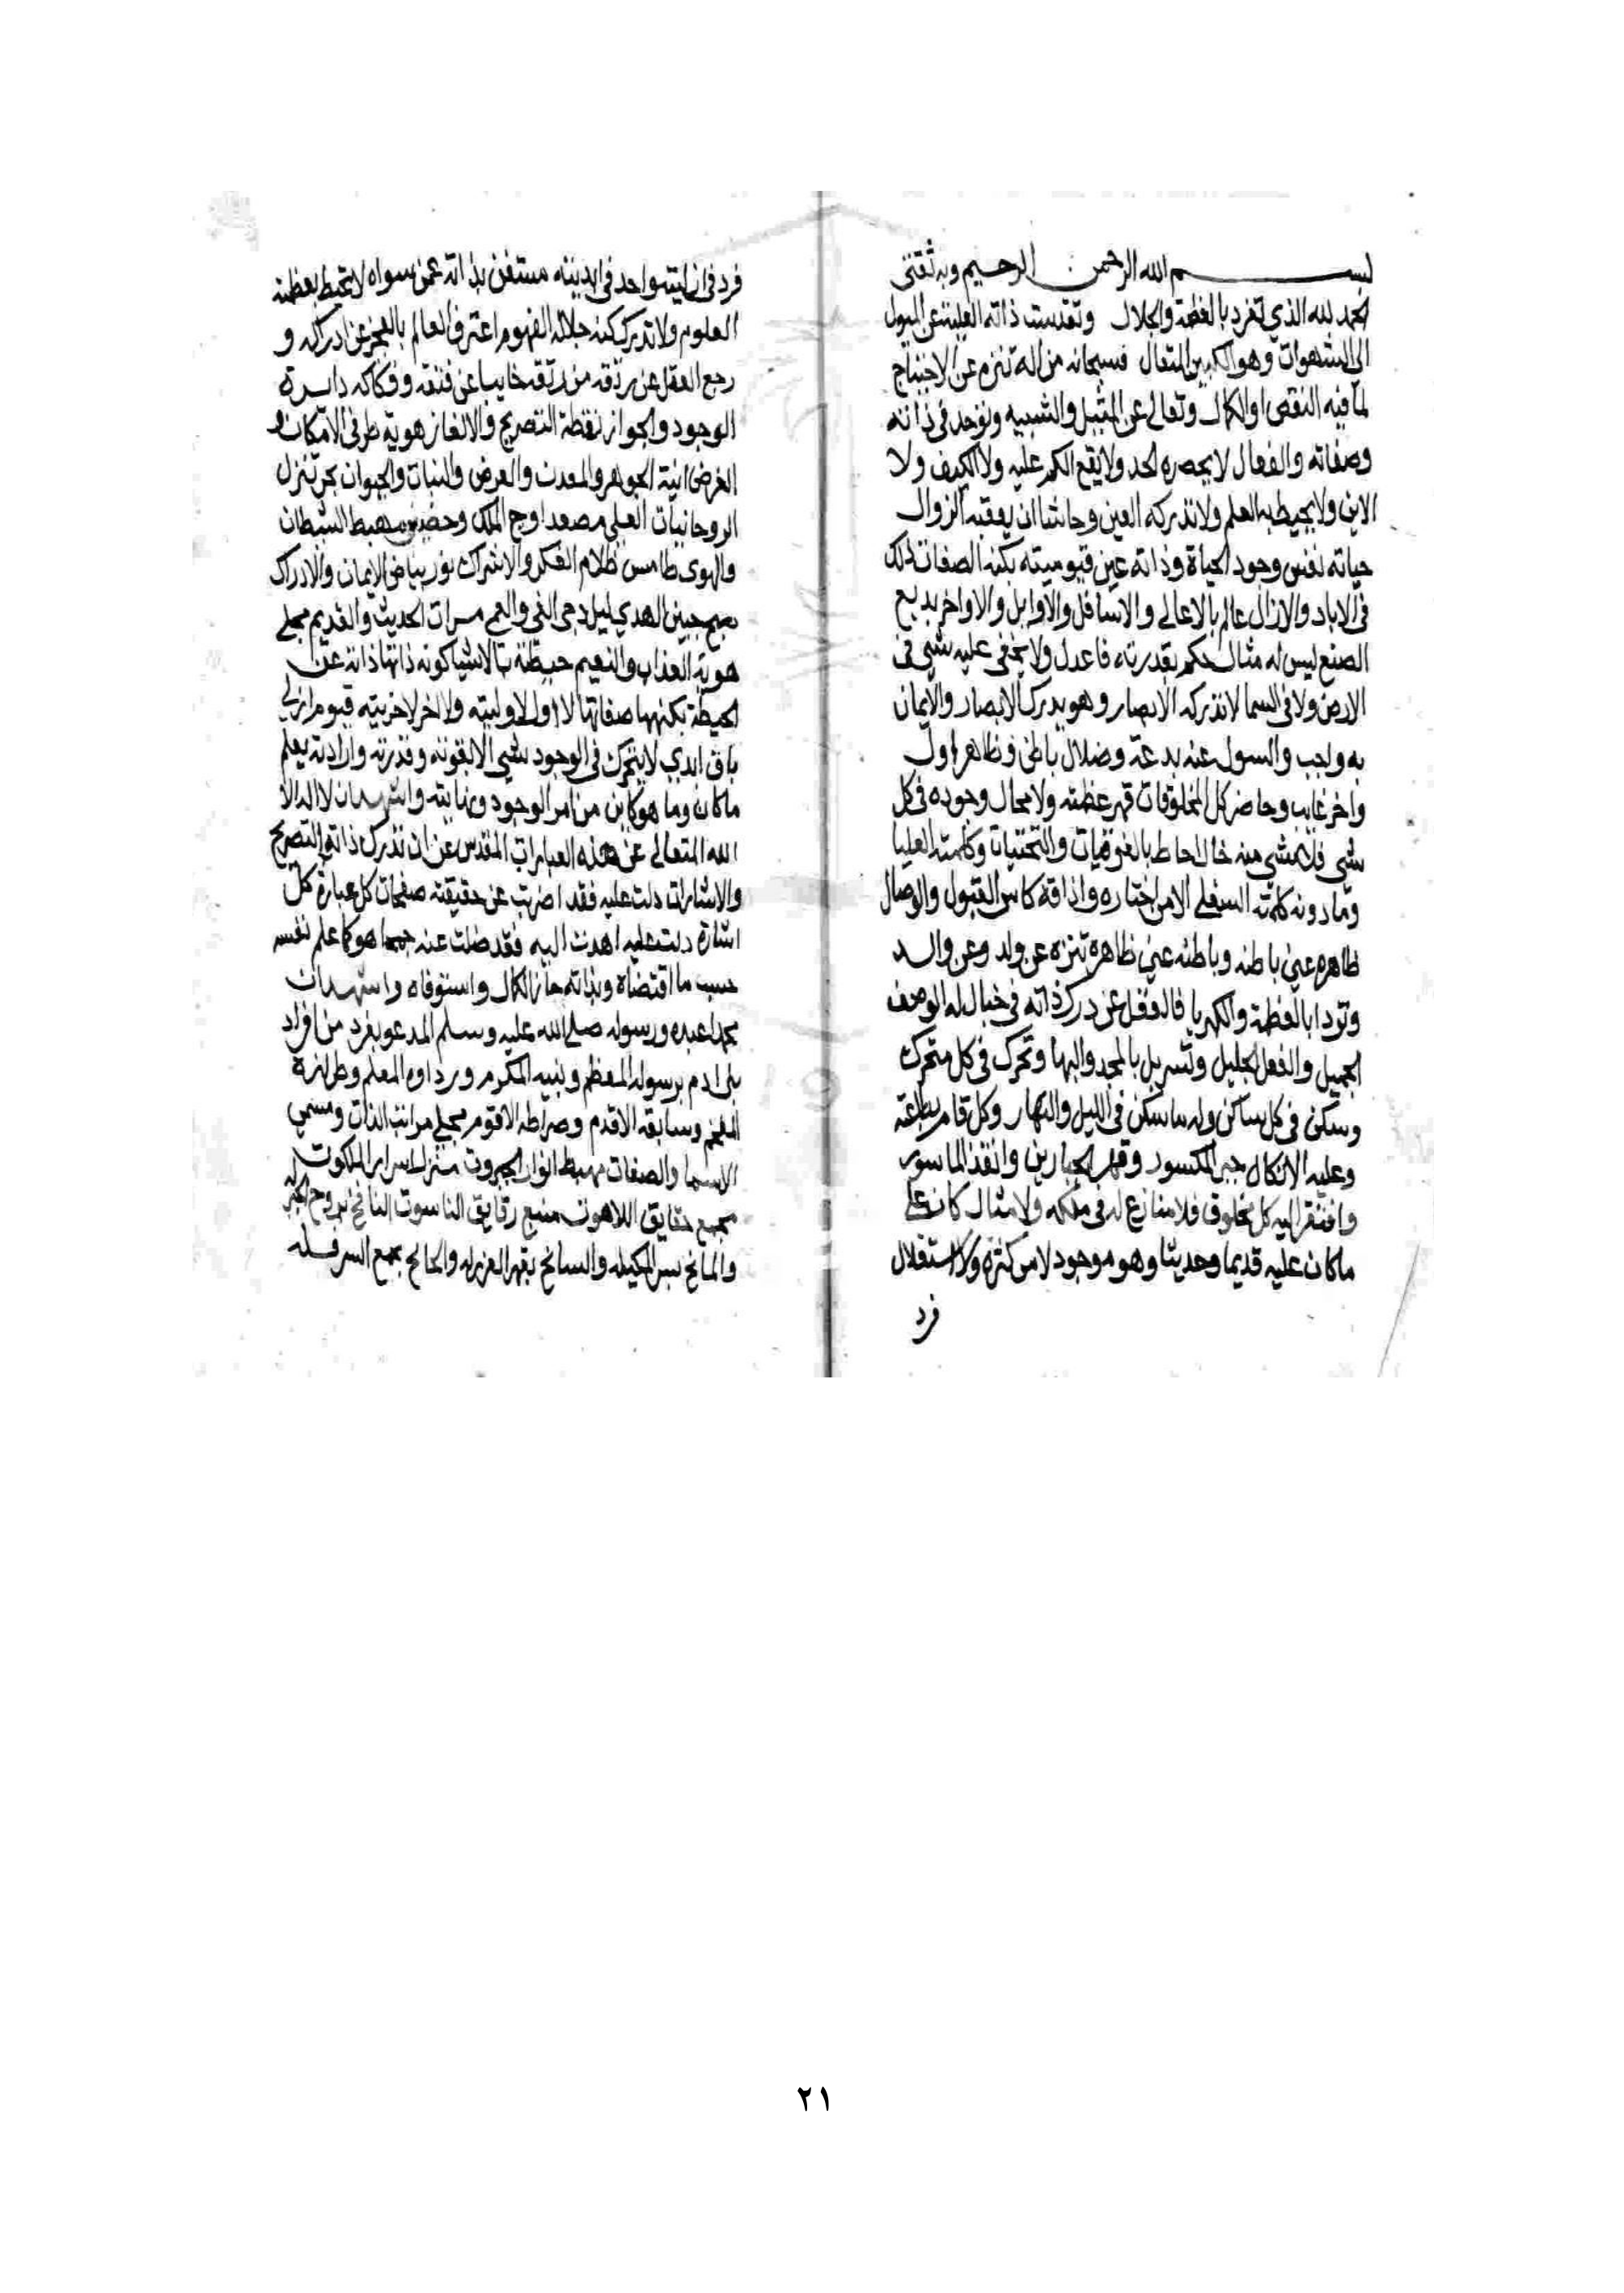 بسم الله الرحمن الرحيم وبه ثقتي
الحمد لله الذي تفرد بالعظمة والجلال وتقدست ذاته العلية عن الميول
الى الشهوات وهو الكبير المتعال فسبحانه من اله تنزه عن الاحتياج
لما فيه النقص او الكمال وتعالى عن المثيل والشبيه وتوحد في ذاته
وصفاته والفعال لا يحصره الحد ولا يقع الكم عليه ولا الكيف ولا
الاين ولا يحيط به العلم ولا تدركه العين وحاشا ان يعقبه الزوال
حياته نفس وجود الحياة وذاته عين قيوميته بكنه الصفات لك
في الاباد والازال عالم بالاعالي والاسافل والاوايل والاواخر بديع
الصنع ليس له مثال حكم بقدرته فاعدل ولا يخفى عليه شي في
الارض ولا في السما لا تدركه الابصار وهو يدرك الابصار والايمان
به واجب والسول عنه بدعة وضلال باطن وظاهر اول
واخر غايب وحاضر كل المخلوقات قهر عظمته ولا محال وجوده في كل
شي فلا شي منه خال احاط بالفوقيات والتحتيات وكلمته العليا
وما دونه كلمته السفلى الا من اختاره واذاقه كاس القبول والوصال
ظاهره عين باطنه وباطنه عين ظاهره تنزه عن ولد وعن والد
وتردا بالعظمة والكبريا فالعقل عن درك ذاته في خبال له الوصف
الجميل والفعل الجليل وتسربل بالمجد والبها وتحرك في كل متحرك
وسكن في كل ساكن وله ما سكن في الليل والنهار وكل قام بطاعته
وعليه الاتكال جبر المكسور وقهر الجبارين وانقذ الماسور
وافتقر اليه كل مخلوق فلا منازع له في ملكه ولا مثال كان على
ما كان عليه قديما وحديثا وهو موجود لا من كثرة ولا استقلال
فرد
فرد في ازليته واحد في ابديته مستغن بذاته عمن سواه لا تحيط بعظمته
العلوم ولا تدرك كنه جلاله الفهوم اعترف العالم بالعجز عن ادراكه و
رجع العقل عن رتقه خايبا عن فتقه وفكاكه دايرة
الوجود والجواز نقطة التصريح والالغاز هوية طرفي الامكان و
الغرض انية الجوهر والمعدن والعرض والنبات والحيوان بحر تنزل
الروحانيات العلى مصعد اوج الملك وحضيض مهبط الشيطان
والهوى طامس ظلام الفكر والاشراك نور بياض الايمان والادراك
صبح جبين الهدي ليل دجى الغي والعمى مرات الحديث والقديم مجلى
هوية العذاب والنعيم حيطته بالاشيا كونه ذاتها ذاته عن
الحيطة بكنهها صفاتها لا اول لاوليته ولا اخر لاخريته قيوم ازلي
باق ابدي لا يتحرك في الوجود شي الا بقوته وقدرته وارادته يعلم
ما كان وما هو كاين من امر الوجود ونهايته واشهد ان لا اله الا
الله المتعالى عن هذه العبارات المقدس عن ان تدرك ذاته بالتصريح
والاشارات دلت عليه فقد اضربت عن حقيقته صفحات كل عبارة كل
اشارة دلت عليه اهدت اليه فقد ضلت عنه جمحا هو كما علم نفسه
حسب ما اقتضاه وبذاته حاز الكمال واستوفاه واشهد ان
محمدا عبده ورسوله صلى الله عليه وسلم المدعو بفرد من افراد
بنى ادم برسوله المعظم ونبيه المكرم وردايه المعلم وطرازه
المفخم وسابقه الاقدم وصراطه الاقوم مجلى مراتب الذات ومنتهى
الاسما والصفات مهبط انوار الجبروت منزل اسرار الملكوت
مجمع حقايق اللاهوت منبع رقايق الناسوت النافخ بروح الجبرله
والمانح بسر الميكيله والسابح بقهر العزرله والجانح بجمع السرفله
٢١